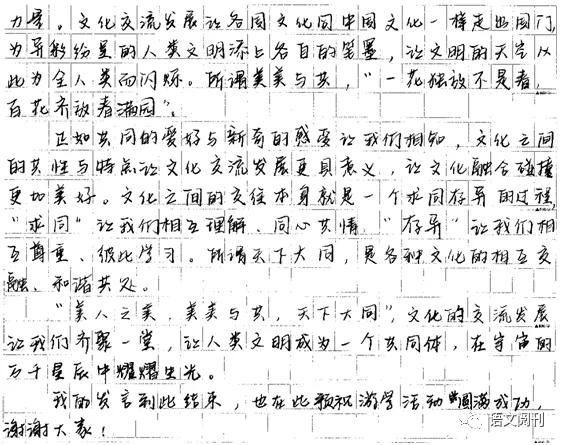 力量。文化交流发展让各国文化同中国文化一样走出国门,
为异彩纷呈的人类文明添上各自的笔墨,让文明的天空从
此为全人类而闪烁。所谓美美与共,“一花独放不是春,
百花齐放春满园”。
正如共同的爱好与新奇的感受让我们相知,文化之间
的共性与特点让文化交流发展更具意义,让文化融合碰撞
更加美好。文化之间的交往本身就是一个求同存异的过程,
“求同”让我们相互理解、同心共情,“存异”让我们相
互尊重、彼此学习。所谓天下大同,是各种文化的相互交
融、和谐共处。
“美人之美,美美与共,天下大同”,文化的交流发展
让我们齐聚一堂,让人类文明成为一个共同体,在宇宙的
万千星辰中熠熠生光。
我的发言到此结束,也在此预祝游学活动圆满成功,
谢谢大家!
语文阅刊